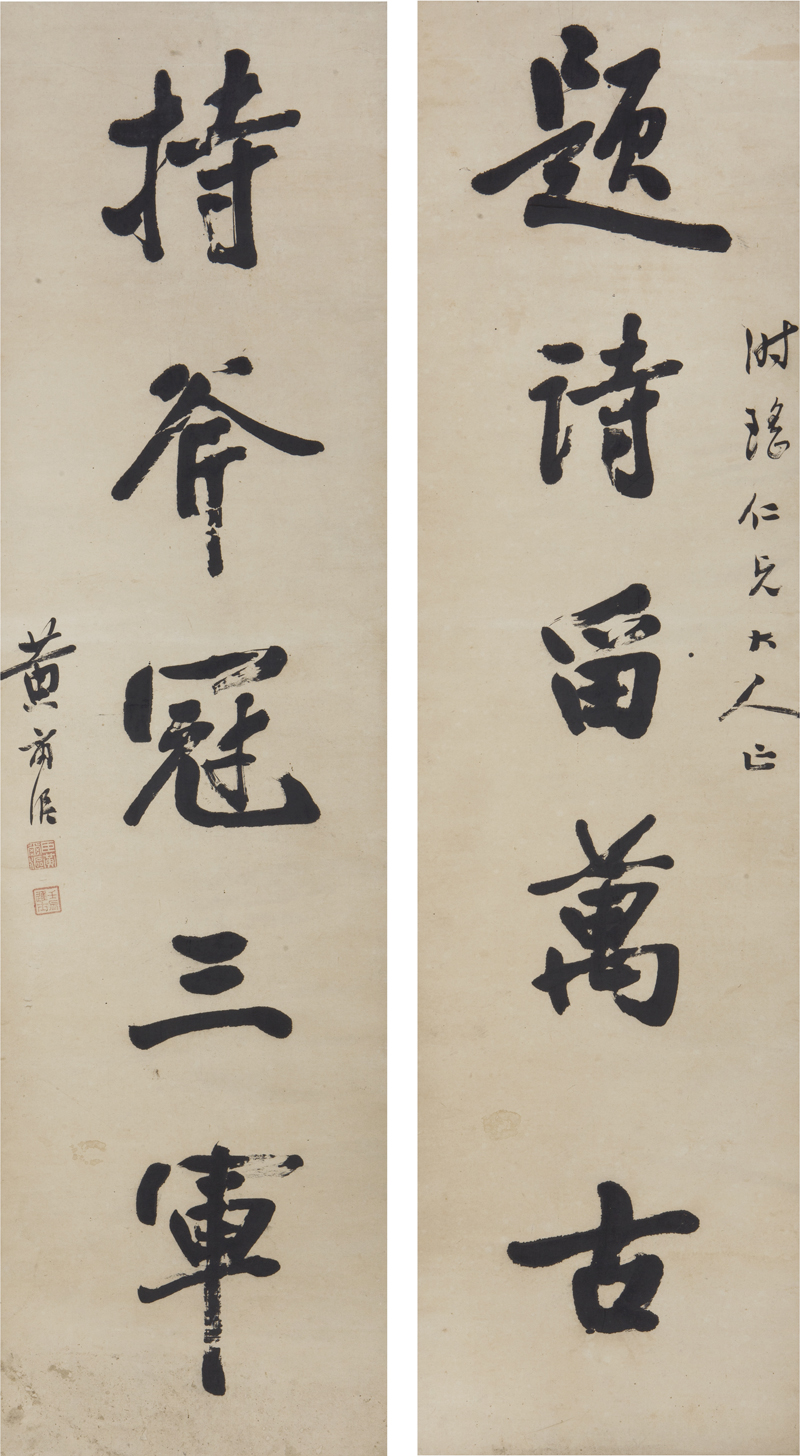 題詩留萬古
時瑤仁兄大人正
持斧冠三軍
黃